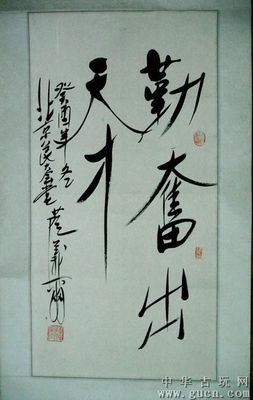 勤奋出
天才
癸酉年冬
北京
中华古玩网
www.gucn.com